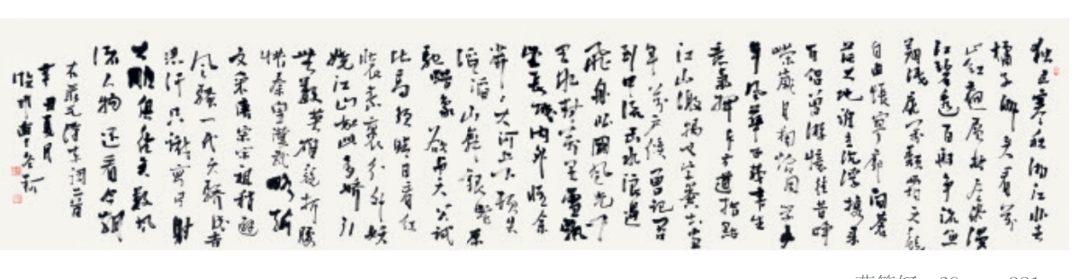 独立寒秋湘江北去
橘子洲头看万
山红遍层林尽染漫
江碧透百舸争流鱼
翔浅底万类霜天竞
自由怅寥廓问苍
茫大地谁主沉浮携来
百侣曾游忆往昔峥
嵘岁月稠恰同学少
年风华正茂书生
意气挥斥方遒指点
江山激扬文字粪土当
年万户侯曾记否
到中流击水浪遏
飞舟北国风光千
里冰封万里雪飘
望长城内外惟余
莽莽大河上下顿失
滔滔山舞银蛇原
驰蜡象欲与天公试
比高须晴日看红
装素裹分外妖
娆江山如此多娇引
无数英雄竞折腰
惜秦皇汉武略输
文采唐宗宋祖稍逊
风骚一代天骄成吉
思汗只识弯弓射
大雕俱往矣数风
流人物还看今朝
右录毛泽东词二首
辛丑夏月